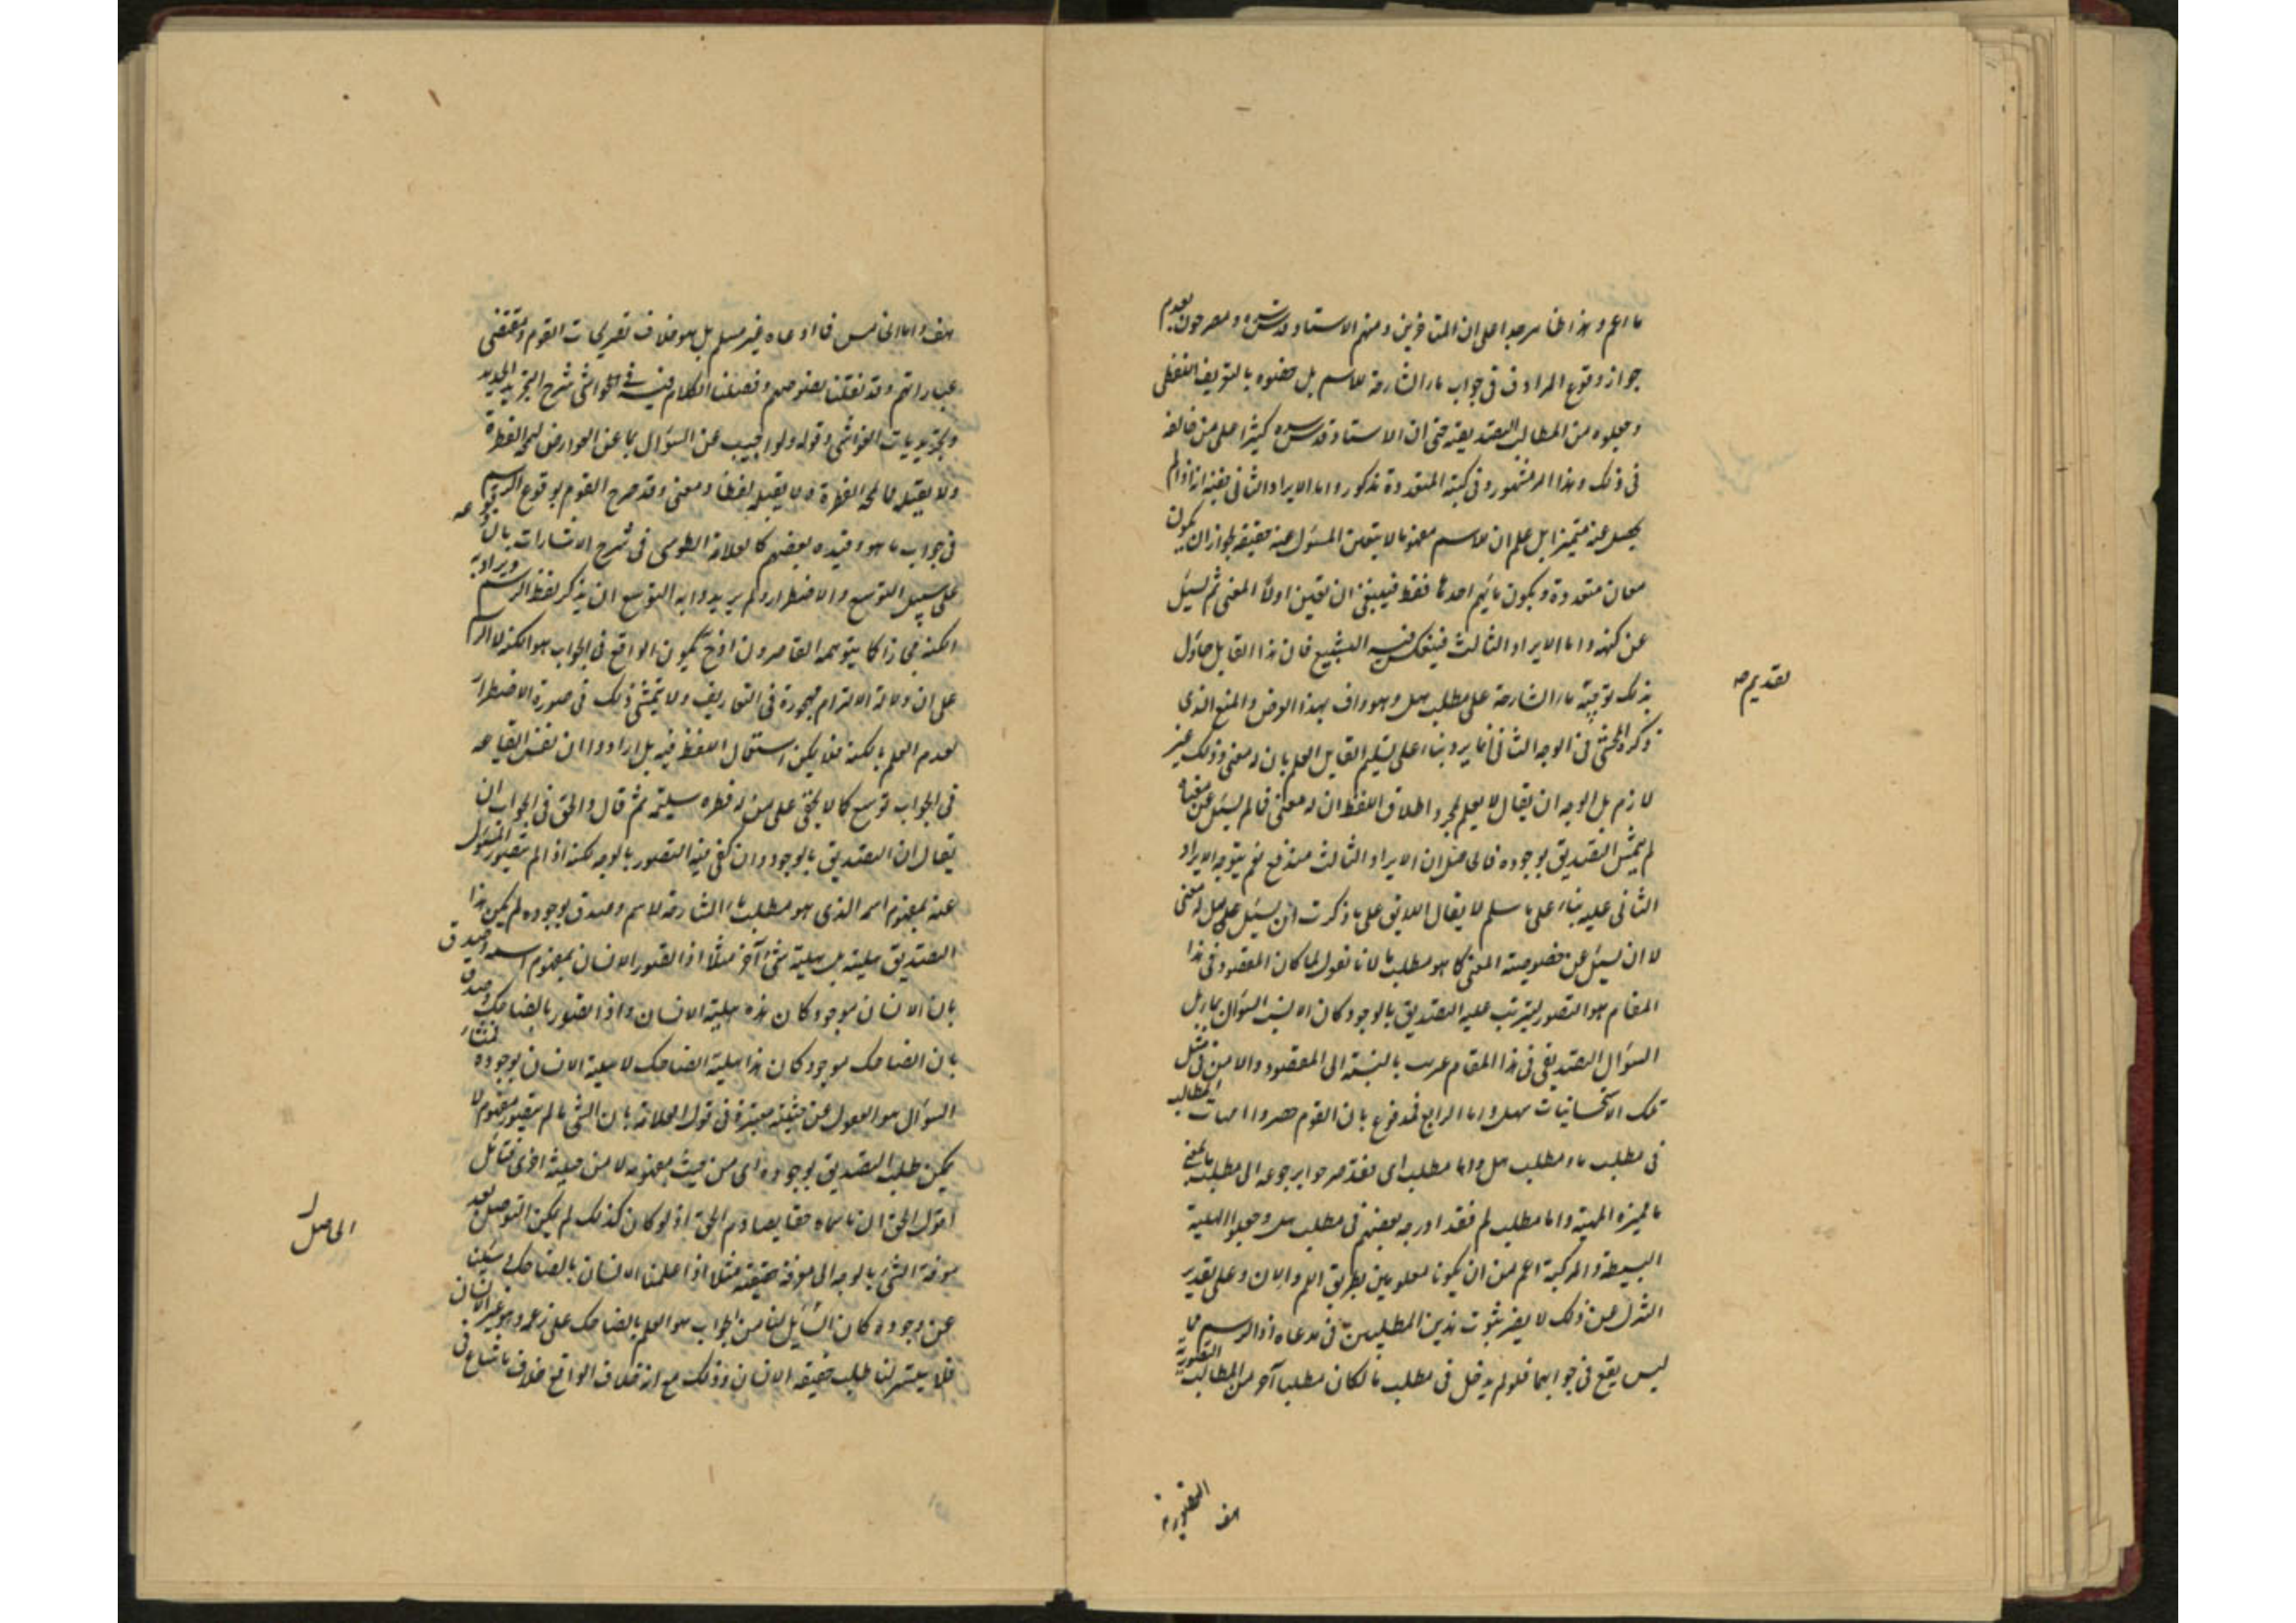 ما اعم وهذا الخا مرجدا على ان المتاخرين ومنهم الاستاد قدس سره ومصرحون بعدم
جواز وقوع المرادف فى جواب ما الشارحة للاسم بل خصوه بالتعريف اللفظى
وجعلوه من المطالب التصديقية حتى ان الاستاد قدس سره كثيرا على من خالفه
فى ذلك وهذا امر مشهور وفى كتبه المتعددة مذكور واما الايراد الثانى فلانه اذا لم
يحصل عنه متميزا بل علم ان للاسم مفهوما لا يتعين المسئول عنه حقيقة لجواز ان يكون
معان متعددة ويكون مائية احدها فقط فينبغى ان تعين اولا المعنى ثم يسئل
عن كنهه واما الايراد الثالث فينعكس فيه التشنيع فان هذا القايل حاول
بذلك توجيه ما الشارحة على مطلب هل وهو واف بهذا الغرض والمنع الذى
ذكره المحشى فى الوجه الثانى انما يرد بناء على تسليم القايل العلم بان له معنى وذلك غير
لازم بل الوجه ان يقال لا يعلم بمجرد اطلاق اللفظ ان له معنى فما لم يسئل عن معناه
لم يتمش التصديق بوجوده فالحاصل ان الايراد الثالث مندفع نعم يتوجه الايراد
الثانى عليه بناء على ما سلم لا يقال اللايق على ما ذكرت ان يسئل هل له معنى
لا ان يسئل عن خصوصية المعنى كما هو مطلب ما لانا نقول لما كان المقصود فى هذا
المقام هو التصور ليترتب عليه التصديق بالوجود كان الانسب السؤال بما بل
السؤال التصديقى فى هذا المقام غريب بالنسبة الى المقصود والامر فى مثل
تلك الاستحسانيات سهل واما الرابع فمدفوع بان القوم حصروا امهات المطالب
فى مطلب ما ومطلب هل واما مطلب اى فقد صرحوا برجوعه الى مطلب ما لمعنى
المميزة المهية واما مطلب لم فقد ادرجه بعضهم فى مطلب هل وجعلوا الهلية
البسيطة والمركبة اعم من ان يكونا معلومين بطريق اللم والان وعلى تقدير
التنزل عن ذلك لا يضر بثبوت هذين المطلبين فى مدعاه اذ الرسم مما
ليس يقع فى جوابهما فلو لم يدخل فى مطلب ما لكان مطلبا آخر من المطالب التصورية
تقديم صه
هف
التصورية
هف واما الخامس فما ادعاه غير مسلم بل هو خلاف تصريحات القوم ومقتضى
عباراتهم وقد نقلنا نصوصهم وفصلنا الكلام فيه فى الحواشى شرح التجريد الجديد
وتجريديات الغواشى وقوله ولو اجيب عن السؤال بما عن العوارض لمجه الفطرة
ولا يقبله فالمجه الفطرة ولا يقبله لفظا ومعنى وقد صرح القوم بوقوع الرسم
فى جواب ما هو وقيده بعضهم كالعلامة الطوسى فى شرح الاشارات بان وقوعه
على سبيل التوسع والاضطرار ولم يريدوا به التوسع ان يذكر لفظ الرسم ويراد به
الكنه مجازا كما يتوهمه القاصرون اذ ح يكون الواقع فى الجواب هو الكنه لا الرسم
على ان دلالة الالتزام مهجورة فى التعاريف ولا يتمشى ذلك فى صورة الاضطرار
لعدم العلم بالكنه فلا يمكن استعمال اللفظ فيه بل ارادوا ان نفس ايقاعه
فى الجواب توسع كما لا يخفى على من له فطرة سليمة ثم قال والحق فى الجواب ان
يقال ان التصديق بالوجود وان كفى فيه التصور بالوجه لكنه اذا لم يتصور المسئول
عنه بمفهوم اسمه الذى هو مطلب ما الشارحة للاسم وصدق بوجوده لم يكن هذا
التصديق هلية بل هلية شئ آخر مثلا اذا تصور الانسان بمفهوم اسمه وصدق
بان الانسان موجود كان هذه هلية الانسان واذا تصور بالضاحك وصدق
بان الضاحك موجود كان هذا هلية الضاحك لا هلية الانسان بوجوده لمنشاء
السؤال هو الغفول عن حيثية معتبرة فى قول العلامة بان الشئ ما لم يتصور مفهومه لا
يمكن طلب التصديق بوجوده اى من حيث مفهومه لا من حيثية اخرى فتأمل
اقول الحق ان ما سماه حقا يصادم الحق اذ لو كان كذلك لم يكن التوصل بعد
معرفة الشئ بالوجه الى معرفة حقيقته مثلا اذا علمنا الانسان بالضاحك وسئلنا
عن وجوده كان الحاصل لنا من الجواب هو العلم بالضاحك على زعمه وهو غير الانسان
فلا يتيسر لنا طلب حقيقة الانسان وذلك مع انه خلاف الواقع خلاف ما شاع فى
الحاصل